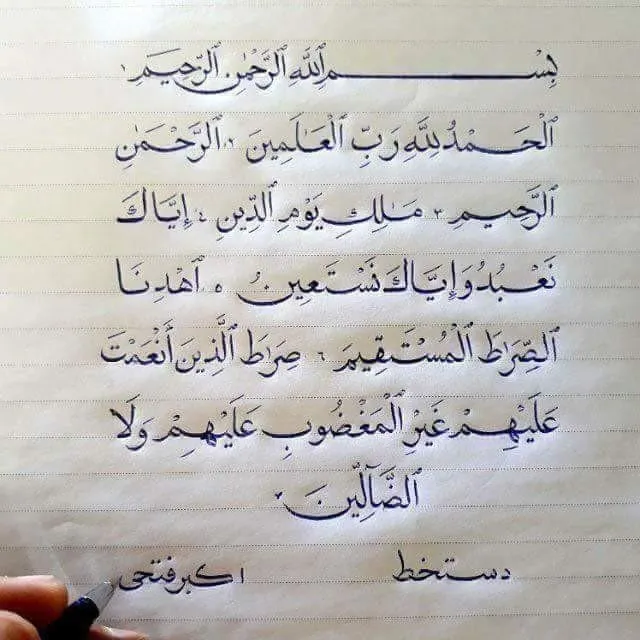 بِسْمِ ٱللَّهِ ٱلرَّحْمَٰنِ ٱلرَّحِيمِ ١
ٱلْحَمْدُ لِلَّهِ رَبِّ ٱلْعَالَمِينَ ٢ ٱلرَّحْمَٰنِ
ٱلرَّحِيمِ ٣ مَٰلِكِ يَوْمِ ٱلدِّينِ ٤ إِيَّاكَ
نَعْبُدُ وَإِيَّاكَ نَسْتَعِينُ ٥ ٱهْدِنَا
ٱلصِّرَاطَ ٱلْمُسْتَقِيمَ ٦ صِرَاطَ ٱلَّذِينَ أَنْعَمْتَ
عَلَيْهِمْ غَيْرِ ٱلْمَغْضُوبِ عَلَيْهِمْ وَلَا
ٱلضَّآلِّينَ ٧
دستخط اکبر فتحی